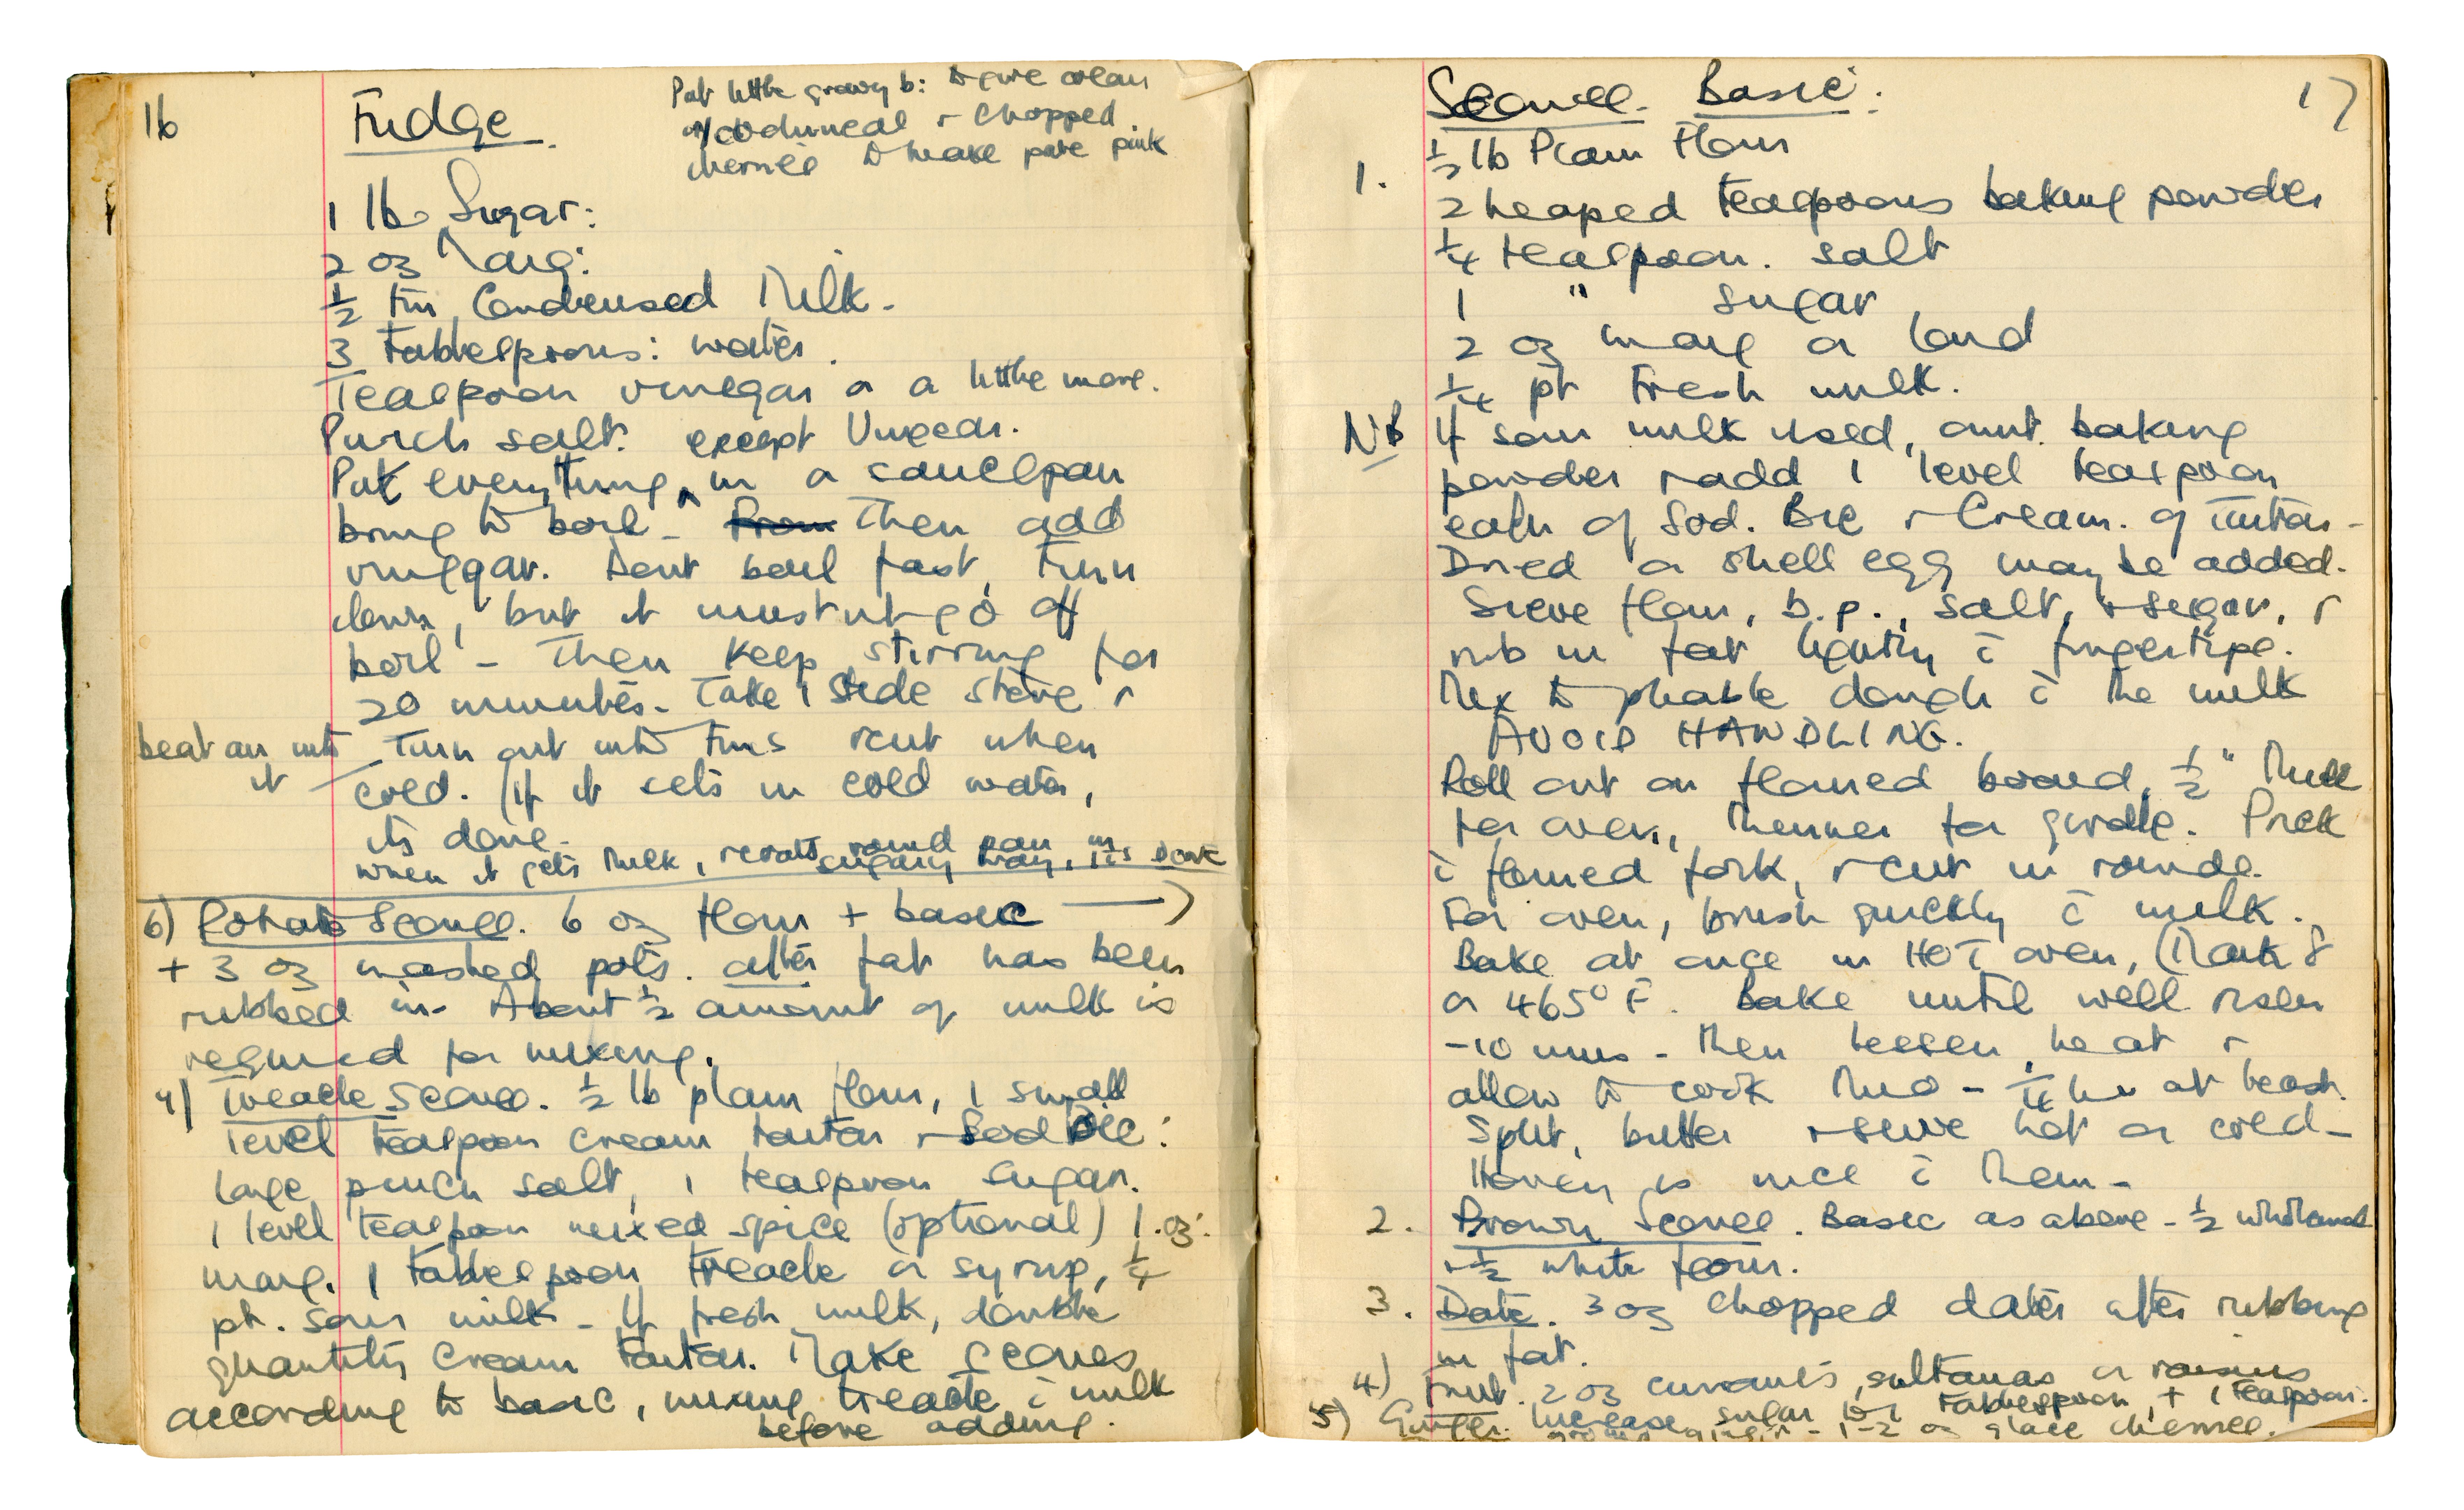 16
Fudge
Put little gravy b: to give cream
or cochineal + chopped
cherries to make pale pink
1 lb. Sugar:
2 oz Marg:
½ tin Condensed Milk.
3 tablespoons: water.
Teaspoon vinegar or a little more.
Pinch salt. except Vinegar.
Put everything ^ in a saucepan
bring to boil - From Then add
vinegar. Dont boil fast, turn
down, but it must nt go off
boil - Then keep stirring for
20 minutes - Take 1 side stove +
beat air into it
Turn out into tins + cut when
cold. (If it sets in cold water,
its done.
when it gets thick, round pan in
sugary way, its done
6) Potato Scones. 6 oz flour + basic →
+ 3 oz mashed pots. after fat has been
rubbed in. About ½ amount of milk is
required for mixing.
7) Treacle Scones. ½ lb plain flour, 1 small
level teaspoon cream tartar + Sod Bic:
large pinch salt, 1 teaspoon sugar.
1 level teaspoon mixed spice (optional) 1.oz:
marg. 1 tablespoon treacle or syrup, ¼
pt. sour milk - If fresh milk, double
quantity cream tartar. Make scones
according to basic, mixing treacle c̄ milk
before adding.
17
Scones. Basic:
1. ½ lb Plain Flour
2 heaped teaspoons baking powder
¼ teaspoon. salt
1 " sugar
2 oz marg or lard
¼ pt Fresh milk.
NB If sour milk used, omit baking
powder + add 1 level teaspoon
each of Sod. Bic + Cream. of Tartar -
Dried or shell egg may be added.
Sieve flour, b.p., salt, + sugar, +
rub in fat lightly c̄ fingertips.
Mix to pliable dough c̄ the milk
AVOID HANDLING.
Roll out on floured board, ½" thick
for oven, thinner for girdle. Prick
c̄ floured fork, + cut in rounds.
For oven, brush quickly c̄ milk.
Bake at once in HOT oven, (Mark 8
or 465° F. Bake until well risen
- 10 mins - then lessen heat +
allow to cook thro - ¼ hr at least.
Split, butter + serve hot or cold -
Honey is nice c̄ them -
2. Brown Scones. Basic as above - ½ wholemeal
+ ½ white flour.
3. Date. 3 oz chopped dates after rubbing
in fat.
4) Fruit. 2 oz currants, sultanas or raisins
5) Ginger. Increase sugar to 1 tablespoon, + 1 teaspoon.
ground ginger - 1-2 oz glace cherries.